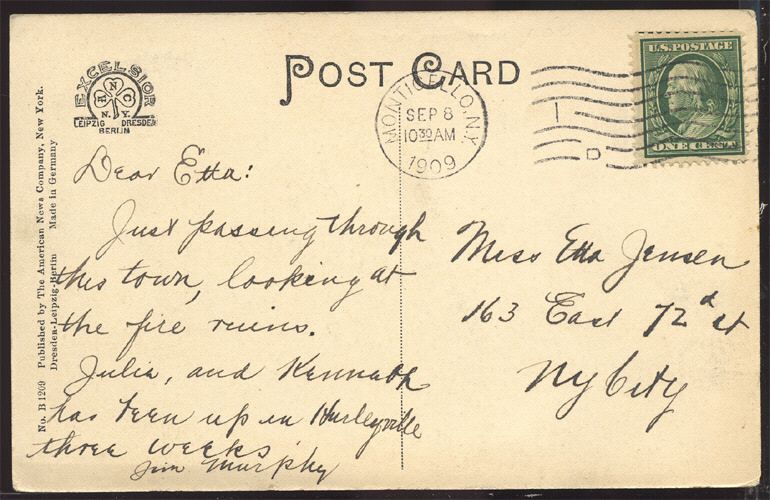 POST CARD
EXCELSIOR
A N C
N. Y.
LEIPZIG DRESDEN
BERLIN
MONTICELLO, N.Y.
SEP 8
10 30 AM
1909
U.S. POSTAGE
ONE CENT
D
No. B 1209 Published by The American News Company, New York.
Dresden-Leipzig-Berlin Made in Germany
Dear Etta:
Just passing through
this town, looking at
the fire ruins.
Julia, and Kenneth
has been up in Hurleyville
three weeks
Jim Murphy
Miss Etta Jensen
163 East 72d st
NyCity